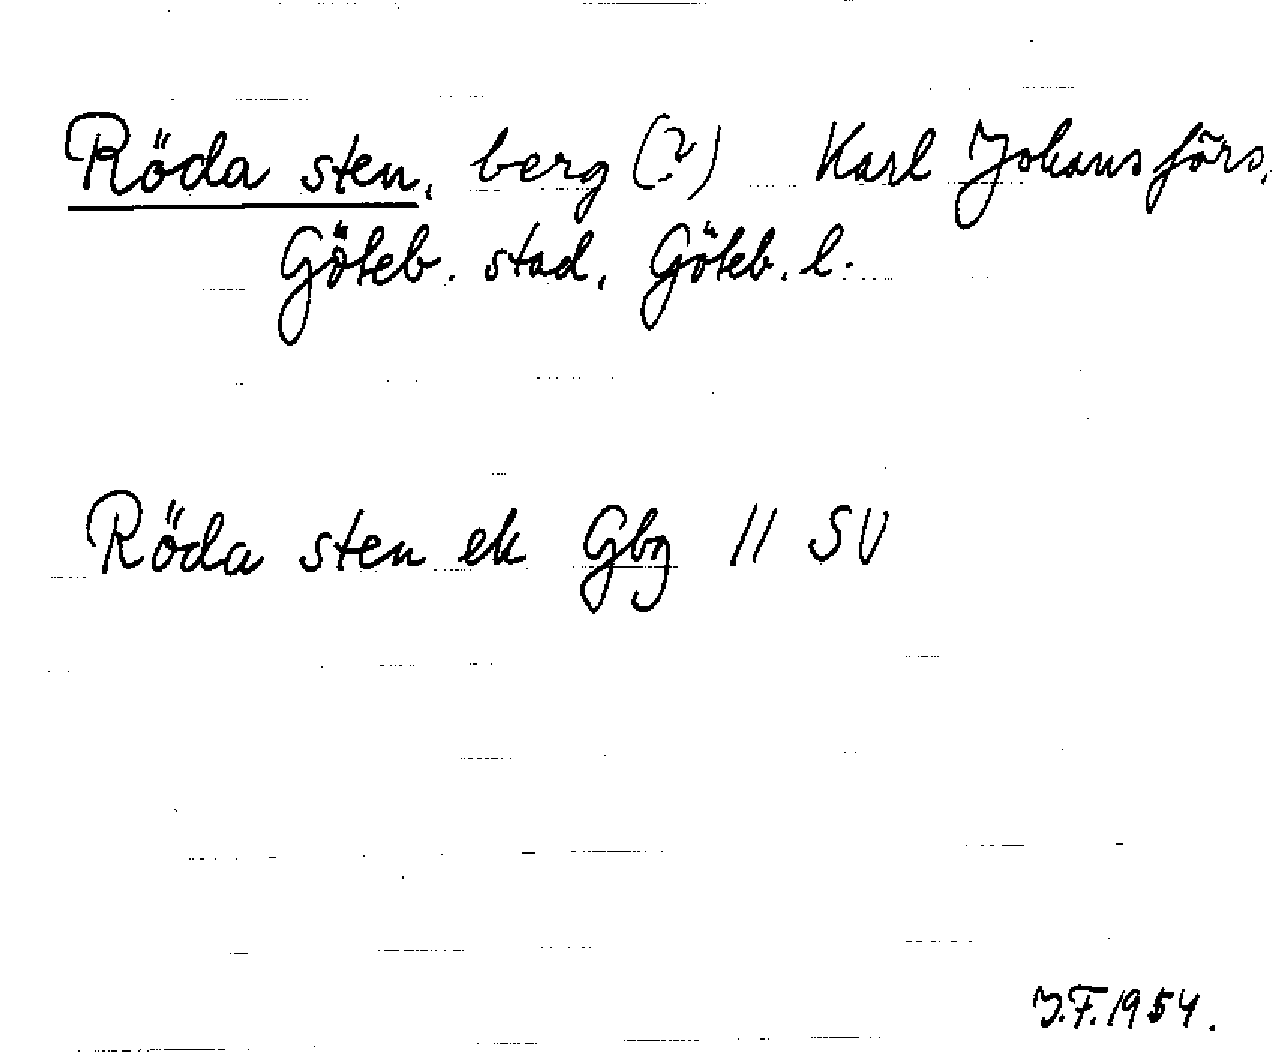 Röda sten, berg (?) Karl Johans förs,
Göteb. stad, Göteb. l.
Röda sten ek Gbg 11 SV
J.F. 1954.